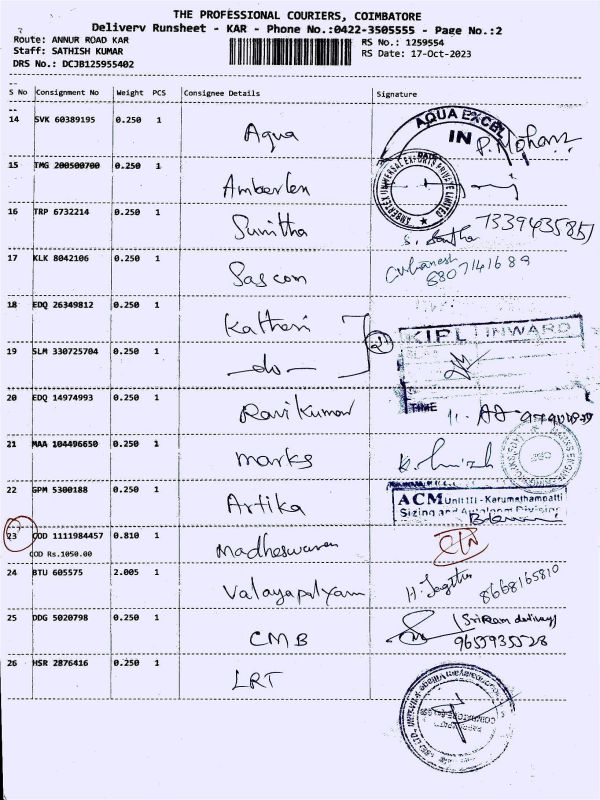 THE PROFESSIONAL COURIERS, COIMBATORE
Delivery Runsheet - KAR - Phone No.:0422-3505555 - Page No.:2
Route: ANNUR ROAD KAR
RS No.: 1259554
Staff: SATHISH KUMAR
RS Date: 17-Oct-2023
DRS No.: DCJB125955402
S No Consignment No Weight PCS Consignee Details Signature
14 SVK 60389195 0.250 1 Aqua AQUA EXCEL IN P. Mohan
15 TMG 200500700 0.250 1 Amberten AMBERTEX UNIVERSAL EXPORTS PRIVATE LIMITED
16 TRP 6732214 0.250 1 Sunitha 7339435851
17 KLK 8042106 0.250 1 Sascom 8807141689
18 EDQ 26349812 0.250 1 Katheri KIPL INWARD
19 SLM 330725704 0.250 1 -do- TIME
20 EDQ 14974993 0.250 1 Ravikumar
21 MAA 104496650 0.250 1 marks
22 GPM 5300188 0.250 1 Artika ACM Unit III - Karumathampatti
Sizing and Autoloom Division
23 COD 1111984457 0.810 1 Madheswaran
COD Rs.1050.00
24 BTU 605575 2.005 1 Valayapalyam 8668165810
25 DDG 5020798 0.250 1 CMB (SriRam delivery)
9655935528
26 HSR 2876416 0.250 1 LRT